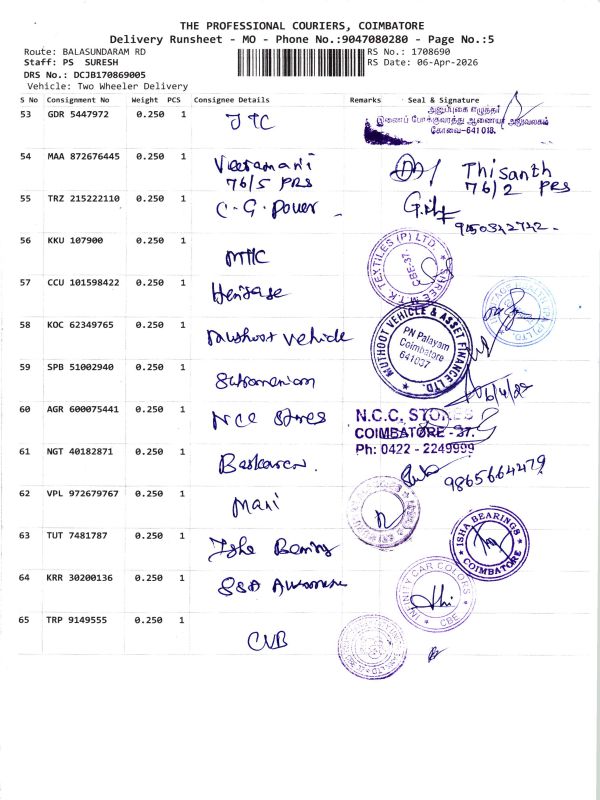 THE PROFESSIONAL COURIERS, COIMBATORE
Delivery Runsheet - MO - Phone No.:9047080280 - Page No.:5
Route: BALASUNDARAM RD
RS No.: 1708690
Staff: PS SURESH
RS Date: 06-Apr-2026
DRS No.: DCJB170869005
Vehicle: Two Wheeler Delivery
S No Consignment No Weight PCS Consignee Details Remarks Seal & Signature
53 GDR 5447972 0.250 1 JTC
இணைப் போக்குவரத்து ஆணையர் அலுவலகம்
கோவை-641 018.
54 MAA 872676445 0.250 1 Veeramani
76/5 PRS
Thisanth
76/2 PRS
55 TRZ 215222110 0.250 1 C.G. Power
9150342742
56 KKU 107900 0.250 1 MTIC
SHREE M.T.K. TEXTILES (P) LTD.
CBE-37.
57 CCU 101598422 0.250 1 Heritage
58 KOC 62349765 0.250 1 Muthoot Vehicle
MUTHOOT VEHICLE & ASSET FINANCE LTD.
PN Palayam
Coimbatore
641037
59 SPB 51002940 0.250 1 Subramaniam
60 AGR 600075441 0.250 1 NCC Stores
N.C.C. STORES
COIMBATORE - 37.
Ph: 0422 - 2249999
61 NGT 40182871 0.250 1 Baskaran.
9865664479
62 VPL 972679767 0.250 1 Mani
63 TUT 7481787 0.250 1 Isha Bearing
ISHA BEARINGS
COIMBATORE
64 KRR 30200136 0.250 1 S&A
INFINITY CAR COLORS
CBE
65 TRP 9149555 0.250 1 CUB